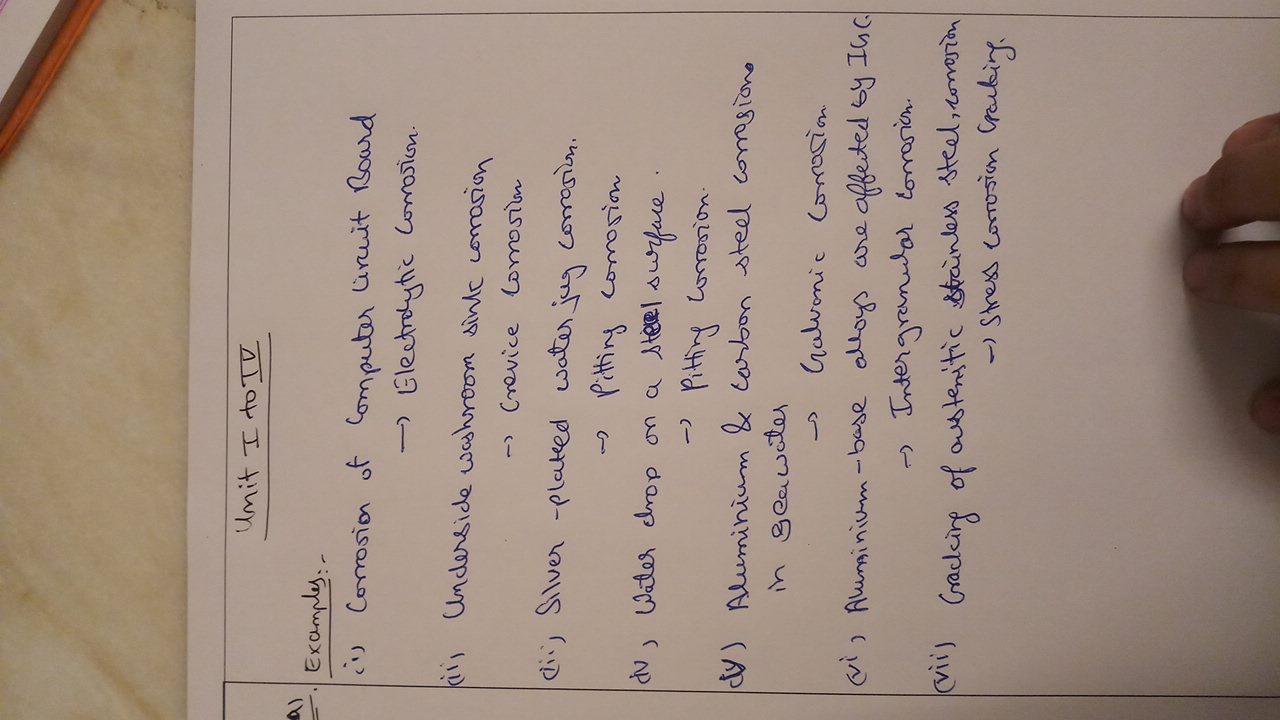 Unit I to IV
a).
Examples:-
(i) Corrosion of Computer Circuit Board
→ Electrolytic Corrosion.
(ii) Underside washroom sink corrosion
→ Crevice Corrosion
(iii) Silver-plated water jug corrosion.
→ Pitting corrosion
(iv) Water drop on a steel surface.
→ Pitting Corrosion.
(v) Aluminium & carbon steel corrosion
in seawater
→ Galvanic Corrosion.
(vi) Aluminium-base alloys are affected by IGC.
→ Intergranular Corrosion.
(vii) Cracking of austenitic stainless steel, corrosion
→ Stress Corrosion Cracking.